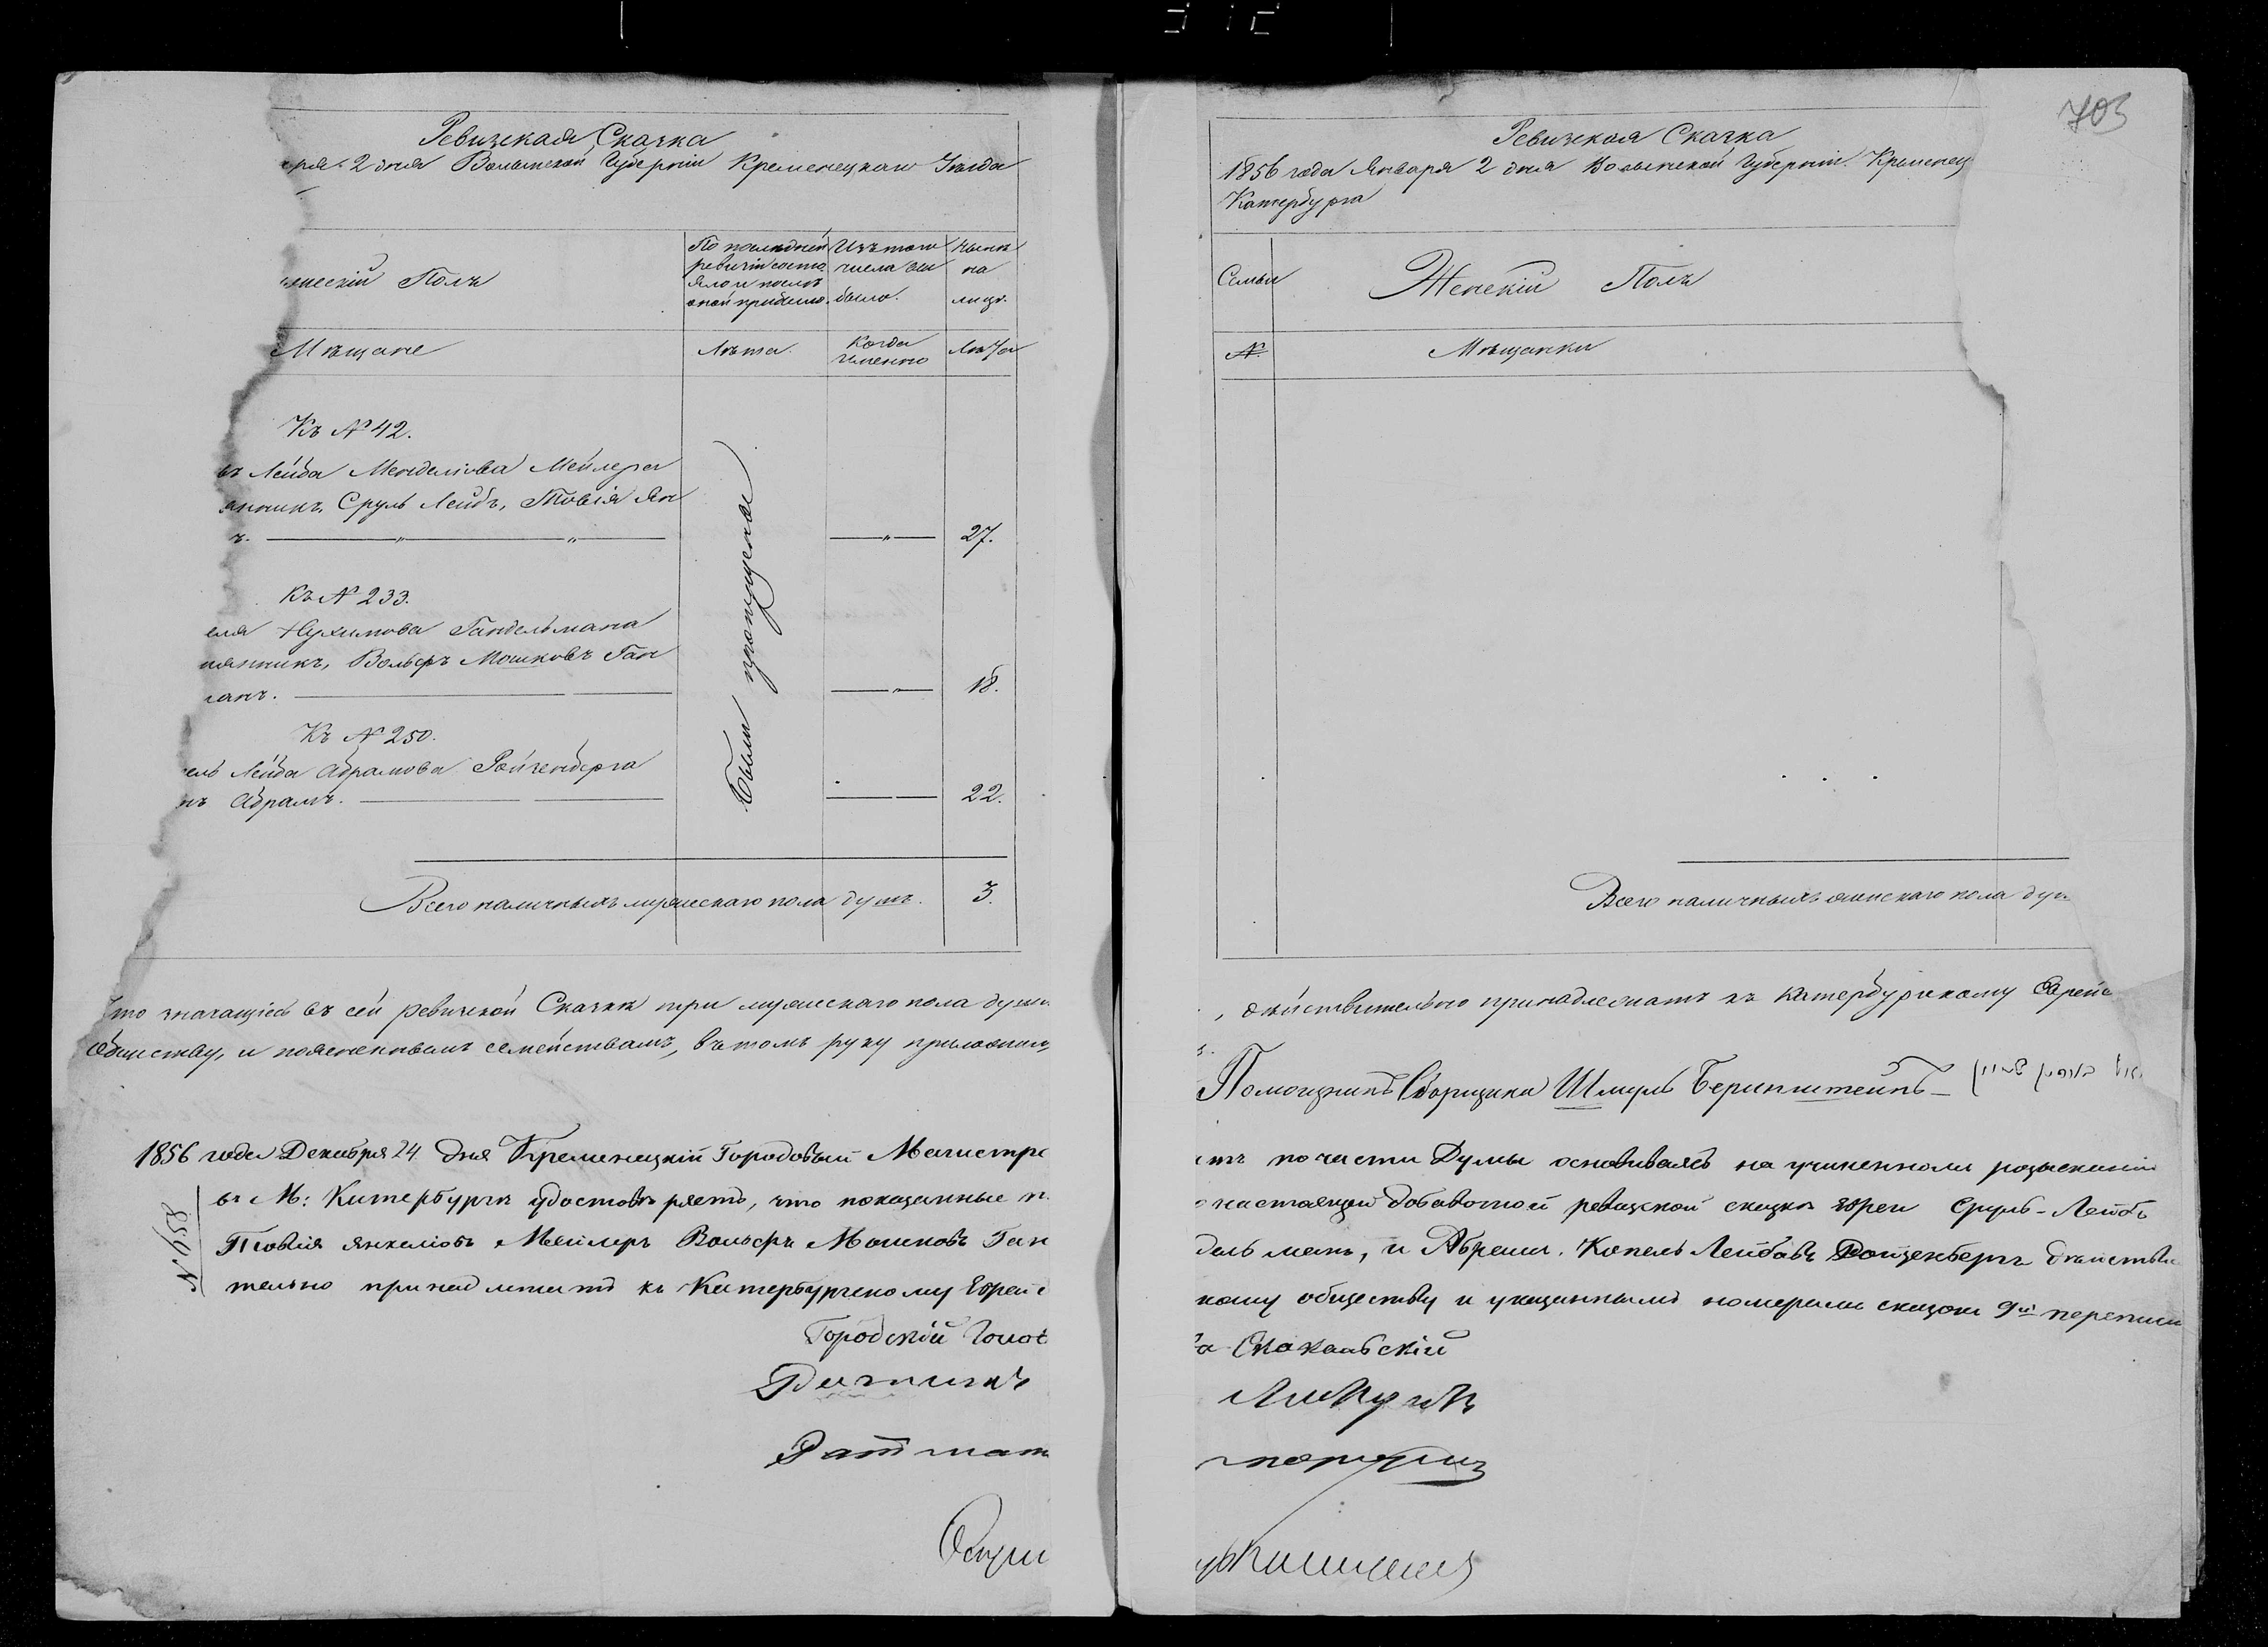 Ревизская Сказка
2 дня Волынской Губерніи Кременецкаго Уезда
Полъ
По последней
ревизіи состо
яло и после
оной прибыло.
Изъ того
числа вы
было.
Ныне
на
лицо.
Мещане
Лета.
Когда
именно
Лета
Къ № 42.
Лейба Менделіова Мейлера
Сруль Лейбъ, Товія Ян
27.
Были пропущены
Къ № 233.
Нухимова Гандельмана
Вольфъ Мошковъ Ган
18.
Къ № 250.
Лейба Абрамова Ройзенберга
Абрамъ.
22.
Всего наличныхъ мужескаго пола душъ. 3.
что значащіеся въ сей ревизской Сказке три мужескаго пола души
обществу, и поясненнымъ семействамъ, въ томъ руку приложилъ,
1856 года Декабря 24 дня Кременецкій Городовый Магистра
въ М: Катербурге удостоверяетъ, что показанные
№ 958
Товія Янкеліовъ Мейлеръ Вольфъ Мошковъ Ган
тельно принадлежитъ къ Катербургскому Еврейс
Городскій Голов
Ратман
703
Ревизская Сказка
1856 года Января 2 дня Волынской Губерніи Кременец
Катербурга
Семьи
Женскій Полъ
№
Мещанки
Всего наличныхъ женскаго пола душ
, действительно принадлежатъ къ Катербургскому Еврейс
Помощникъ Сборщика Шмуль Беринштейнъ
по части Думы основываясь на учиненномъ розысканіи
настоящей добавочной ревизской сказке Евреи Сруль-Лейбъ
дельманъ, и Абрамъ Копель Лейбовъ Ройзенбергъ действи
кому обществу и указаннымъ номерамъ сказки 9й переписи